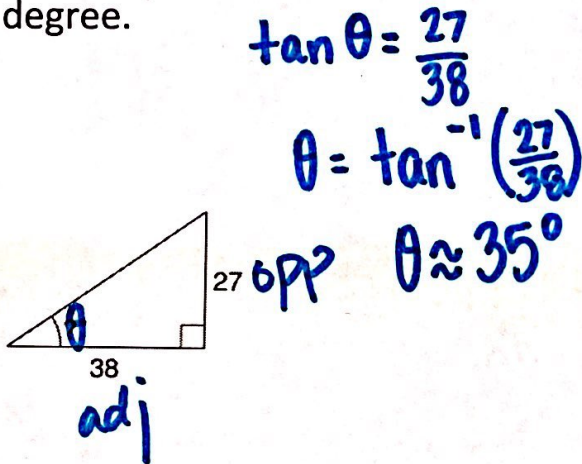 degree.
tan θ = 27/38
θ = tan⁻¹(27/38)
θ ≈ 35°
27 opp
θ
38
adj